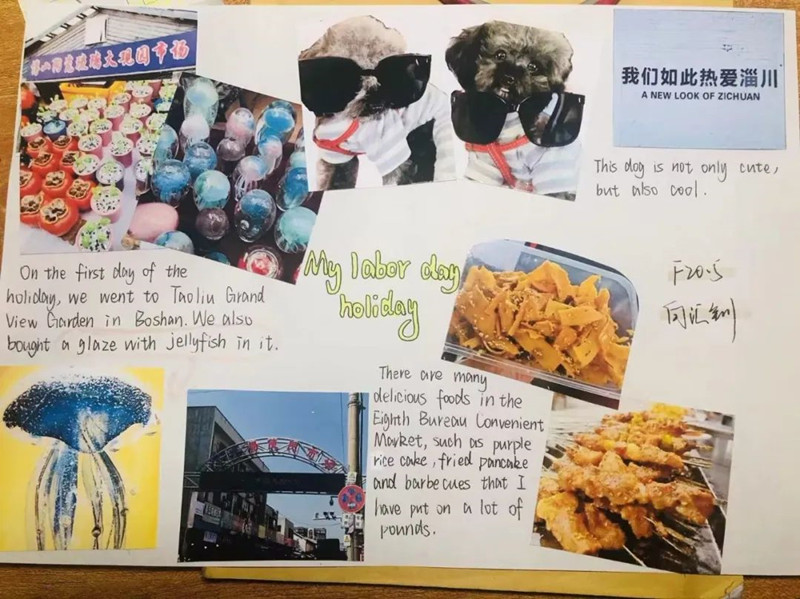 我们如此热爱淄川
A NEW LOOK OF ZICHUAN
This dog is not only cute,
but also cool.
My labor day
holiday
On the first day of the
holiday, we went to Taoliu Grand
View Garden in Boshan. We also
bought a glaze with jellyfish in it.
There are many
delicious foods in the
Eighth Bureau Convenient
Market, such as purple
rice cake, fried pancake
and barbecues that I
have put on a lot of
pounds.